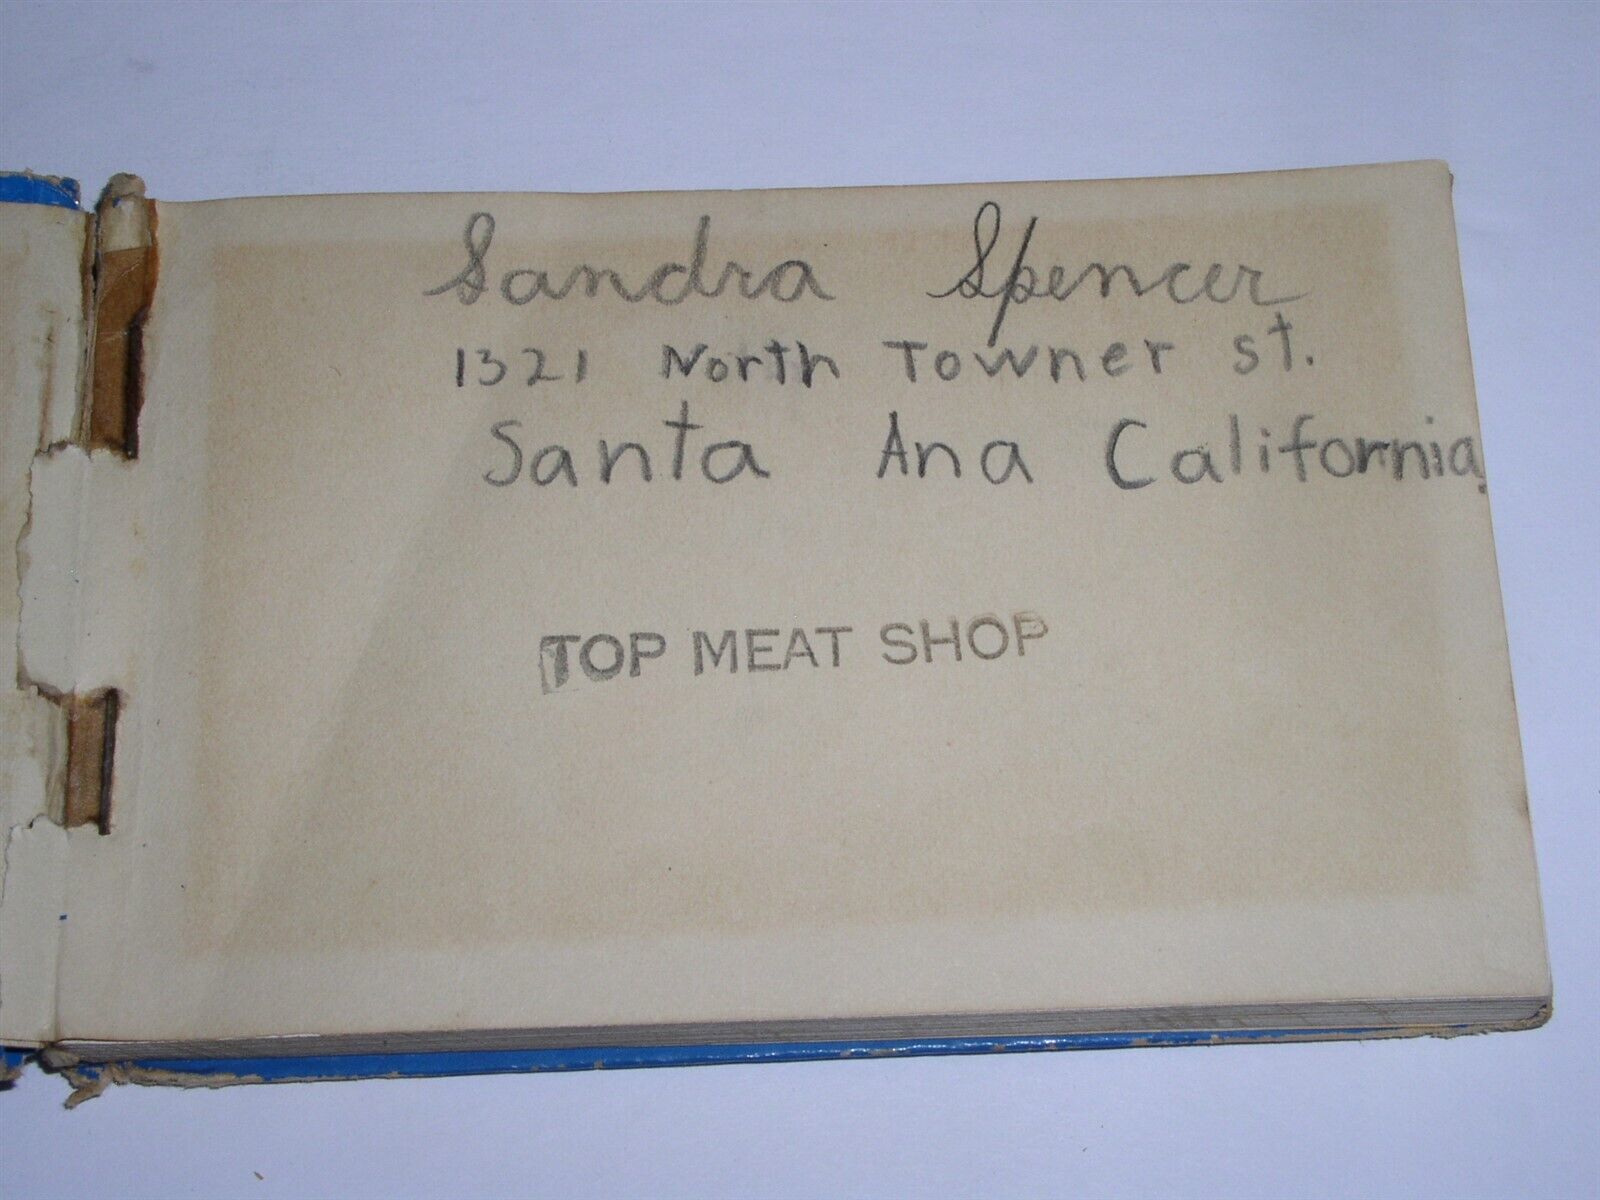 Sandra Spencer
1321 North Towner st.
Santa Ana California.
TOP MEAT SHOP